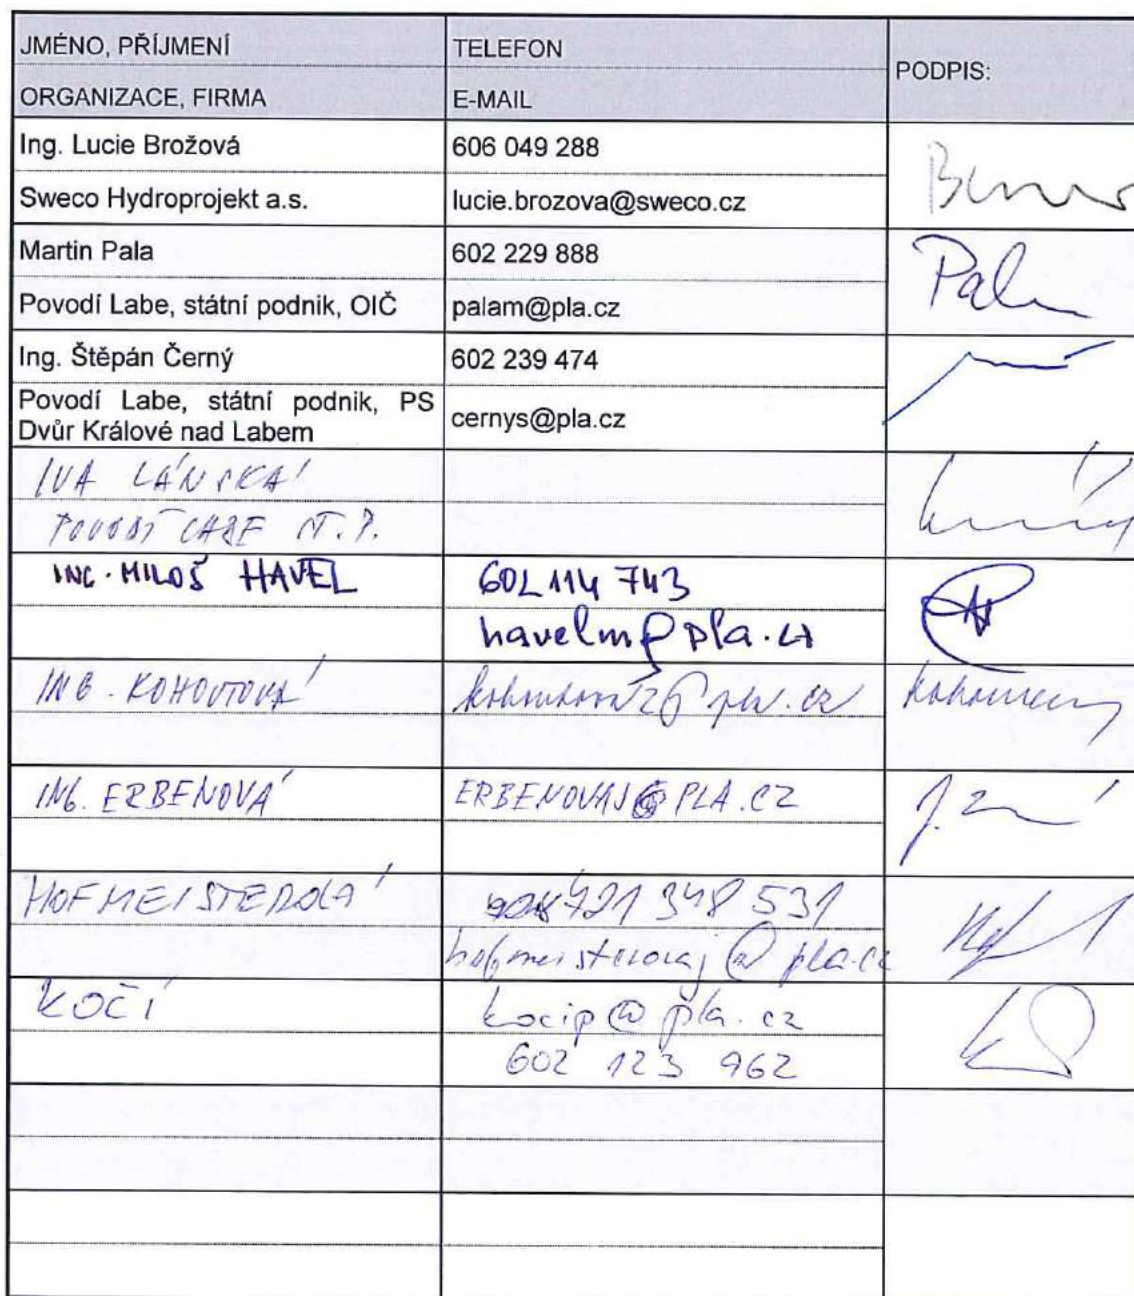 JMÉNO, PŘÍJMENÍ
ORGANIZACE, FIRMA
TELEFON
E-MAIL
PODPIS:
Ing. Lucie Brožová
606 049 288
Sweco Hydroprojekt a.s.
lucie.brozova@sweco.cz
Martin Pala
602 229 888
Pala
Povodí Labe, státní podnik, OIČ
palam@pla.cz
Ing. Štěpán Černý
602 239 474
Povodí Labe, státní podnik, PS
Dvůr Králové nad Labem
cernys@pla.cz
IVA LÁNSKÁ
POVODÍ LABE ST.P.
ING. MILOŠ HAVEL
602 114 743
havelm@pla.cz
ING. KOHOUTOVÁ
ING. ERBENOVÁ
ERBENOVAJ@PLA.CZ
HOFMEISTEROVÁ
721 348 531
hofmeisterovaj@pla.cz
KOČÍ
kocip@pla.cz
602 123 962